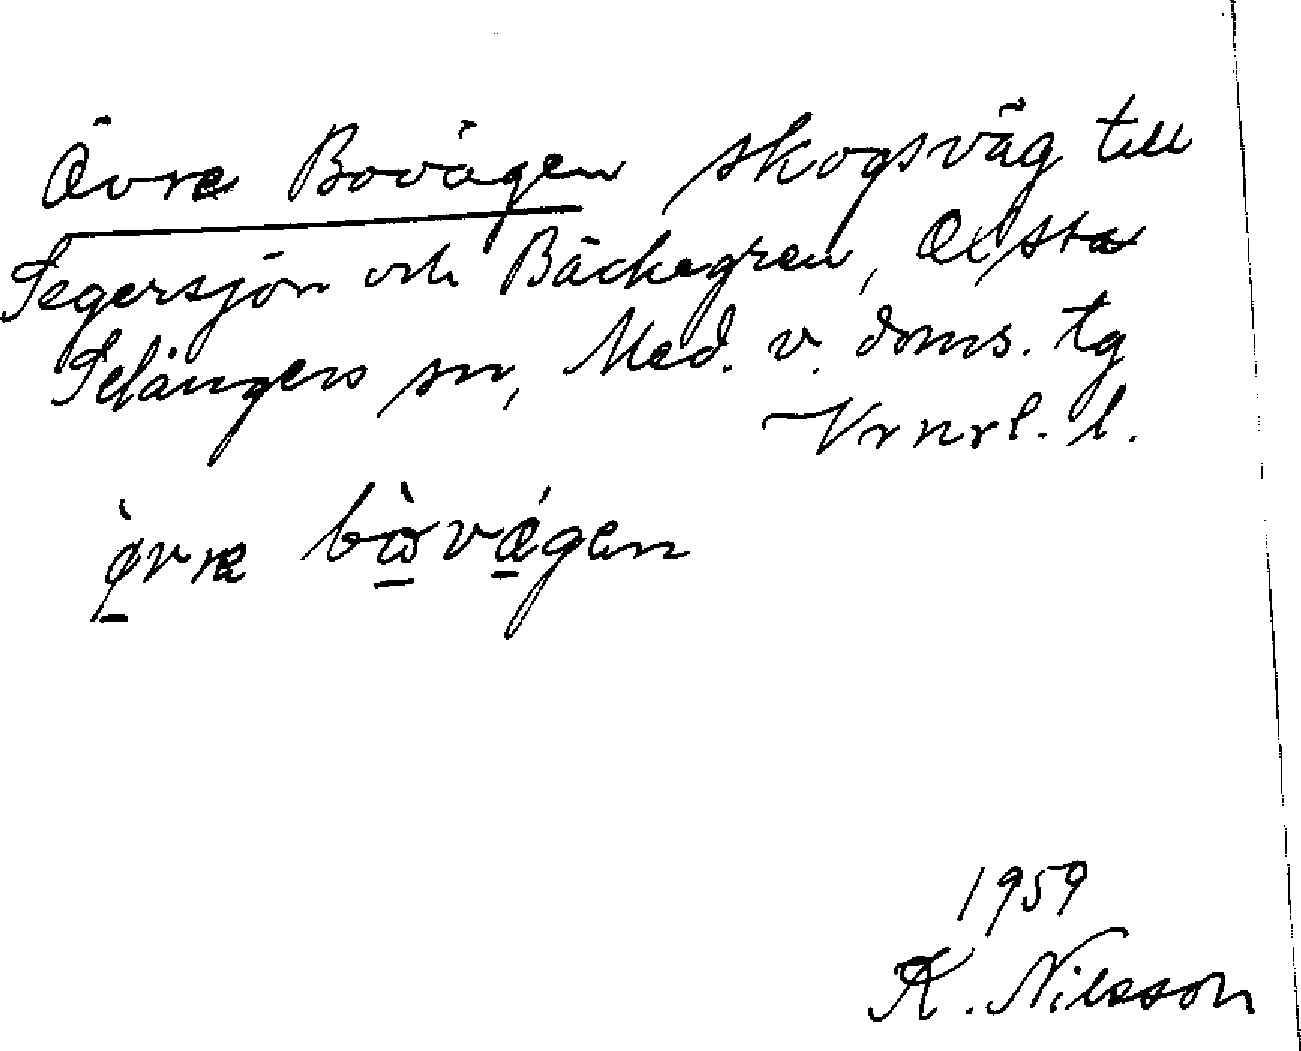 Övre Bovägen skogsväg till
Segersjön och Bäckegren, Oxsta
Selångers sn, Med. v. doms. tg
Vrnrl. l.
ø̀vræ bɷ̀vǽgen
1959
K. Nilsson